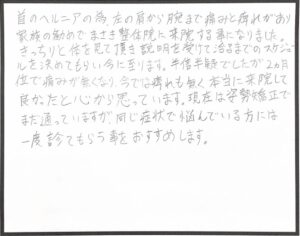 首のヘルニアの為、左の肩から腕まで痛みと痺れがあり
家族の勧めでまさき整体院に来院する事になりました。
きっちりと体を見て頂き説明を受けて治るまでのスケジュー
ルを決めてもらい今に至ります。半信半疑でしたが2ヵ月
位で痛みが無くなり、今では痺れも無く本当に来院して
良かったと心から思っています。現在は姿勢矯正で
まだ通っていますが、同じ症状で悩んでいる方には
一度診てもらう事をおすすめします。